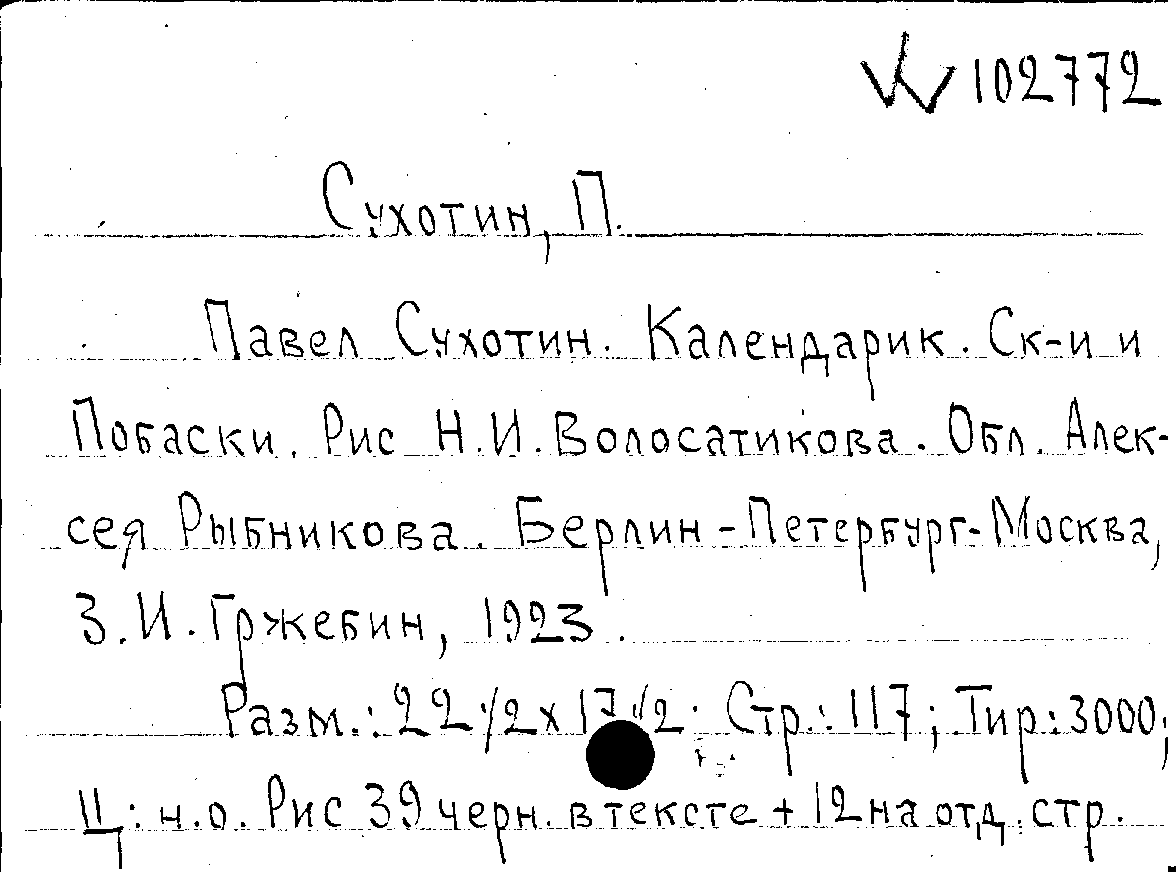 W 102772
Сухотин, П.
Павел Сухотин. Календарик. Ск-и и
Побаски. Рис Н.И. Волосатикова. Обл. Алек-
сея Рыбникова. Берлин-Петербург-Москва,
З.И. Гржебин, 1923.
Разм.: 22 1/2 х 17 1/2. Стр.: 117; Тир: 3000;
Ц: н.о. Рис 39 черн. в тексте + 12 на отд. стр.